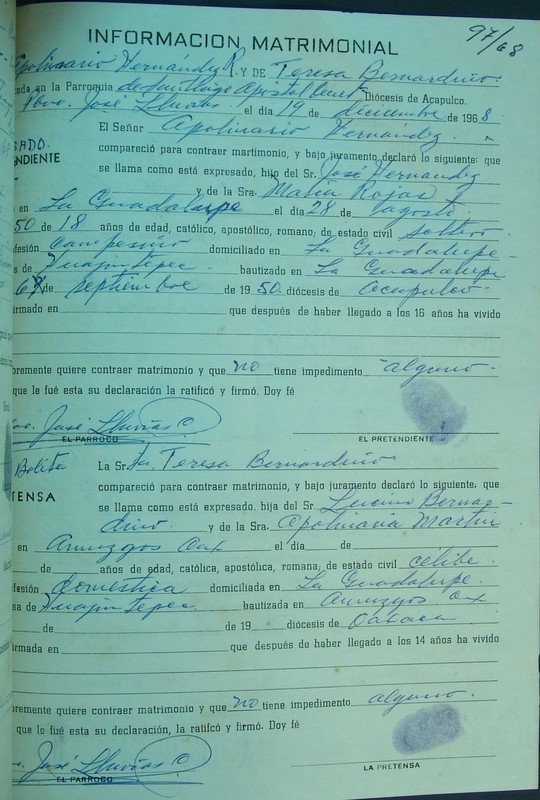 97/68
INFORMACION MATRIMONIAL
Apolinario Hernández R. Y DE Teresa Bernardino.
ada en la Parroquia de Santiago Apostol Diócesis de Acapulco.
Pbro. José Lluvias el día 19 de diciembre de 1968.
El Señor Apolinario Hernandez.
SADO.
NDIENTE
compareció para contraer martimonio, y bajo juramento declaró lo siguiente: que
se llama como está expresado, hijo del Sr. José Hernandez
y de la Sra. Maria Rojas
en La Guadalupe el día 28 de agosto
50 de 18 años de edad, católico, apostólico, romano; de estado civil soltero
ofesión campesino domiciliado en La Guadalupe
s de Huajintepec. bautizado en La Guadalupe
de septiembre de 19 50. diócesis de Acapulco.
irmado en que después de haber llegado a los 16 años ha vivido
bremente quiere contraer matrimonio y que no tiene impedimento alguno.
que le fué esta su declaración la ratificó y firmó. Doy fé
José Lluvias C
EL PARROCO
EL PRETENDIENTE
Bolita
La Sr. ta. Teresa Bernardino
TENSA
compareció para contraer matrimonio, y bajo juramento declaró lo siguiente. que
se llama como está expresado. hija del Sr. Lucino Bernar-
dino. y de la Sra. Apolinaria Martin
en Amuzgos Oax el día de
de años de edad, católica, apostólica, romana; de estado civil célibe.
ofesión domestica domiciliada en La Guadalupe.
sa de Huajintepec. bautizada en Amuzgos Oax
de de 19 diócesis de Oaxaca
irmada en que después de haber llegado a los 14 años ha vivido
bremente quiere contraer matrimonio y que no tiene impedimento alguno.
que le fué esta su declaración, la ratifcó y firmó. Doy fé
José Lluvias C
EL PARROCO
LA PRETENSA